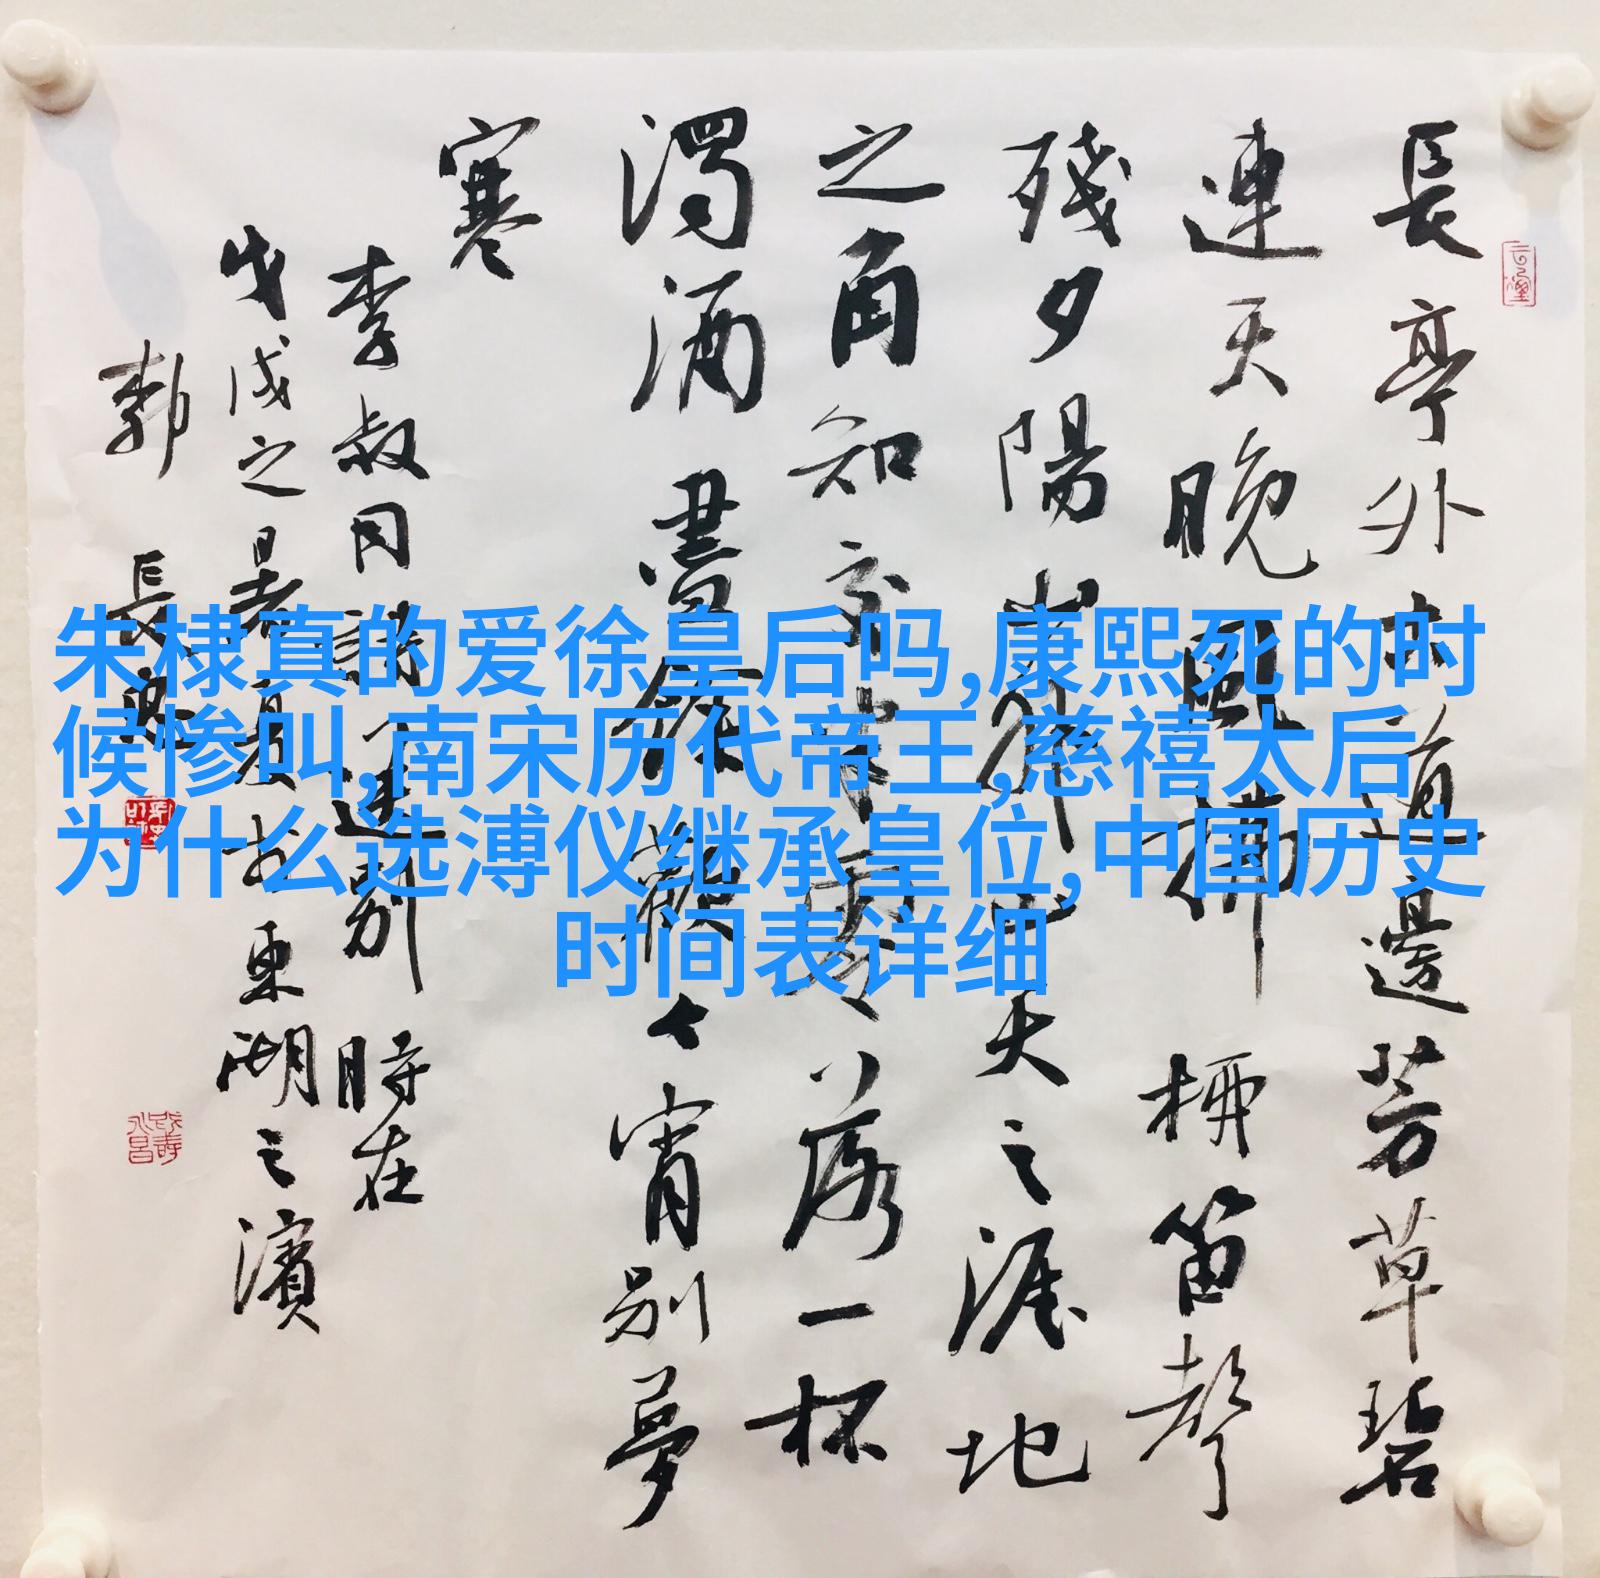 長亭外古道邊芳草碧
連天晚風拂柳笛聲
殘夕陽山外山天之涯地
之角知交半零落一杯
濁酒盡餘歡今宵別夢
寒
李叔同詩一送別 時在
戊戌之暑夏於東湖之濱
郭 長
朱棣真的爱徐皇后吗,康熙死的时
候惨叫,南宋历代帝王,慈禧太后
为什么选溥仪继承皇位,中国历史
时间表详细